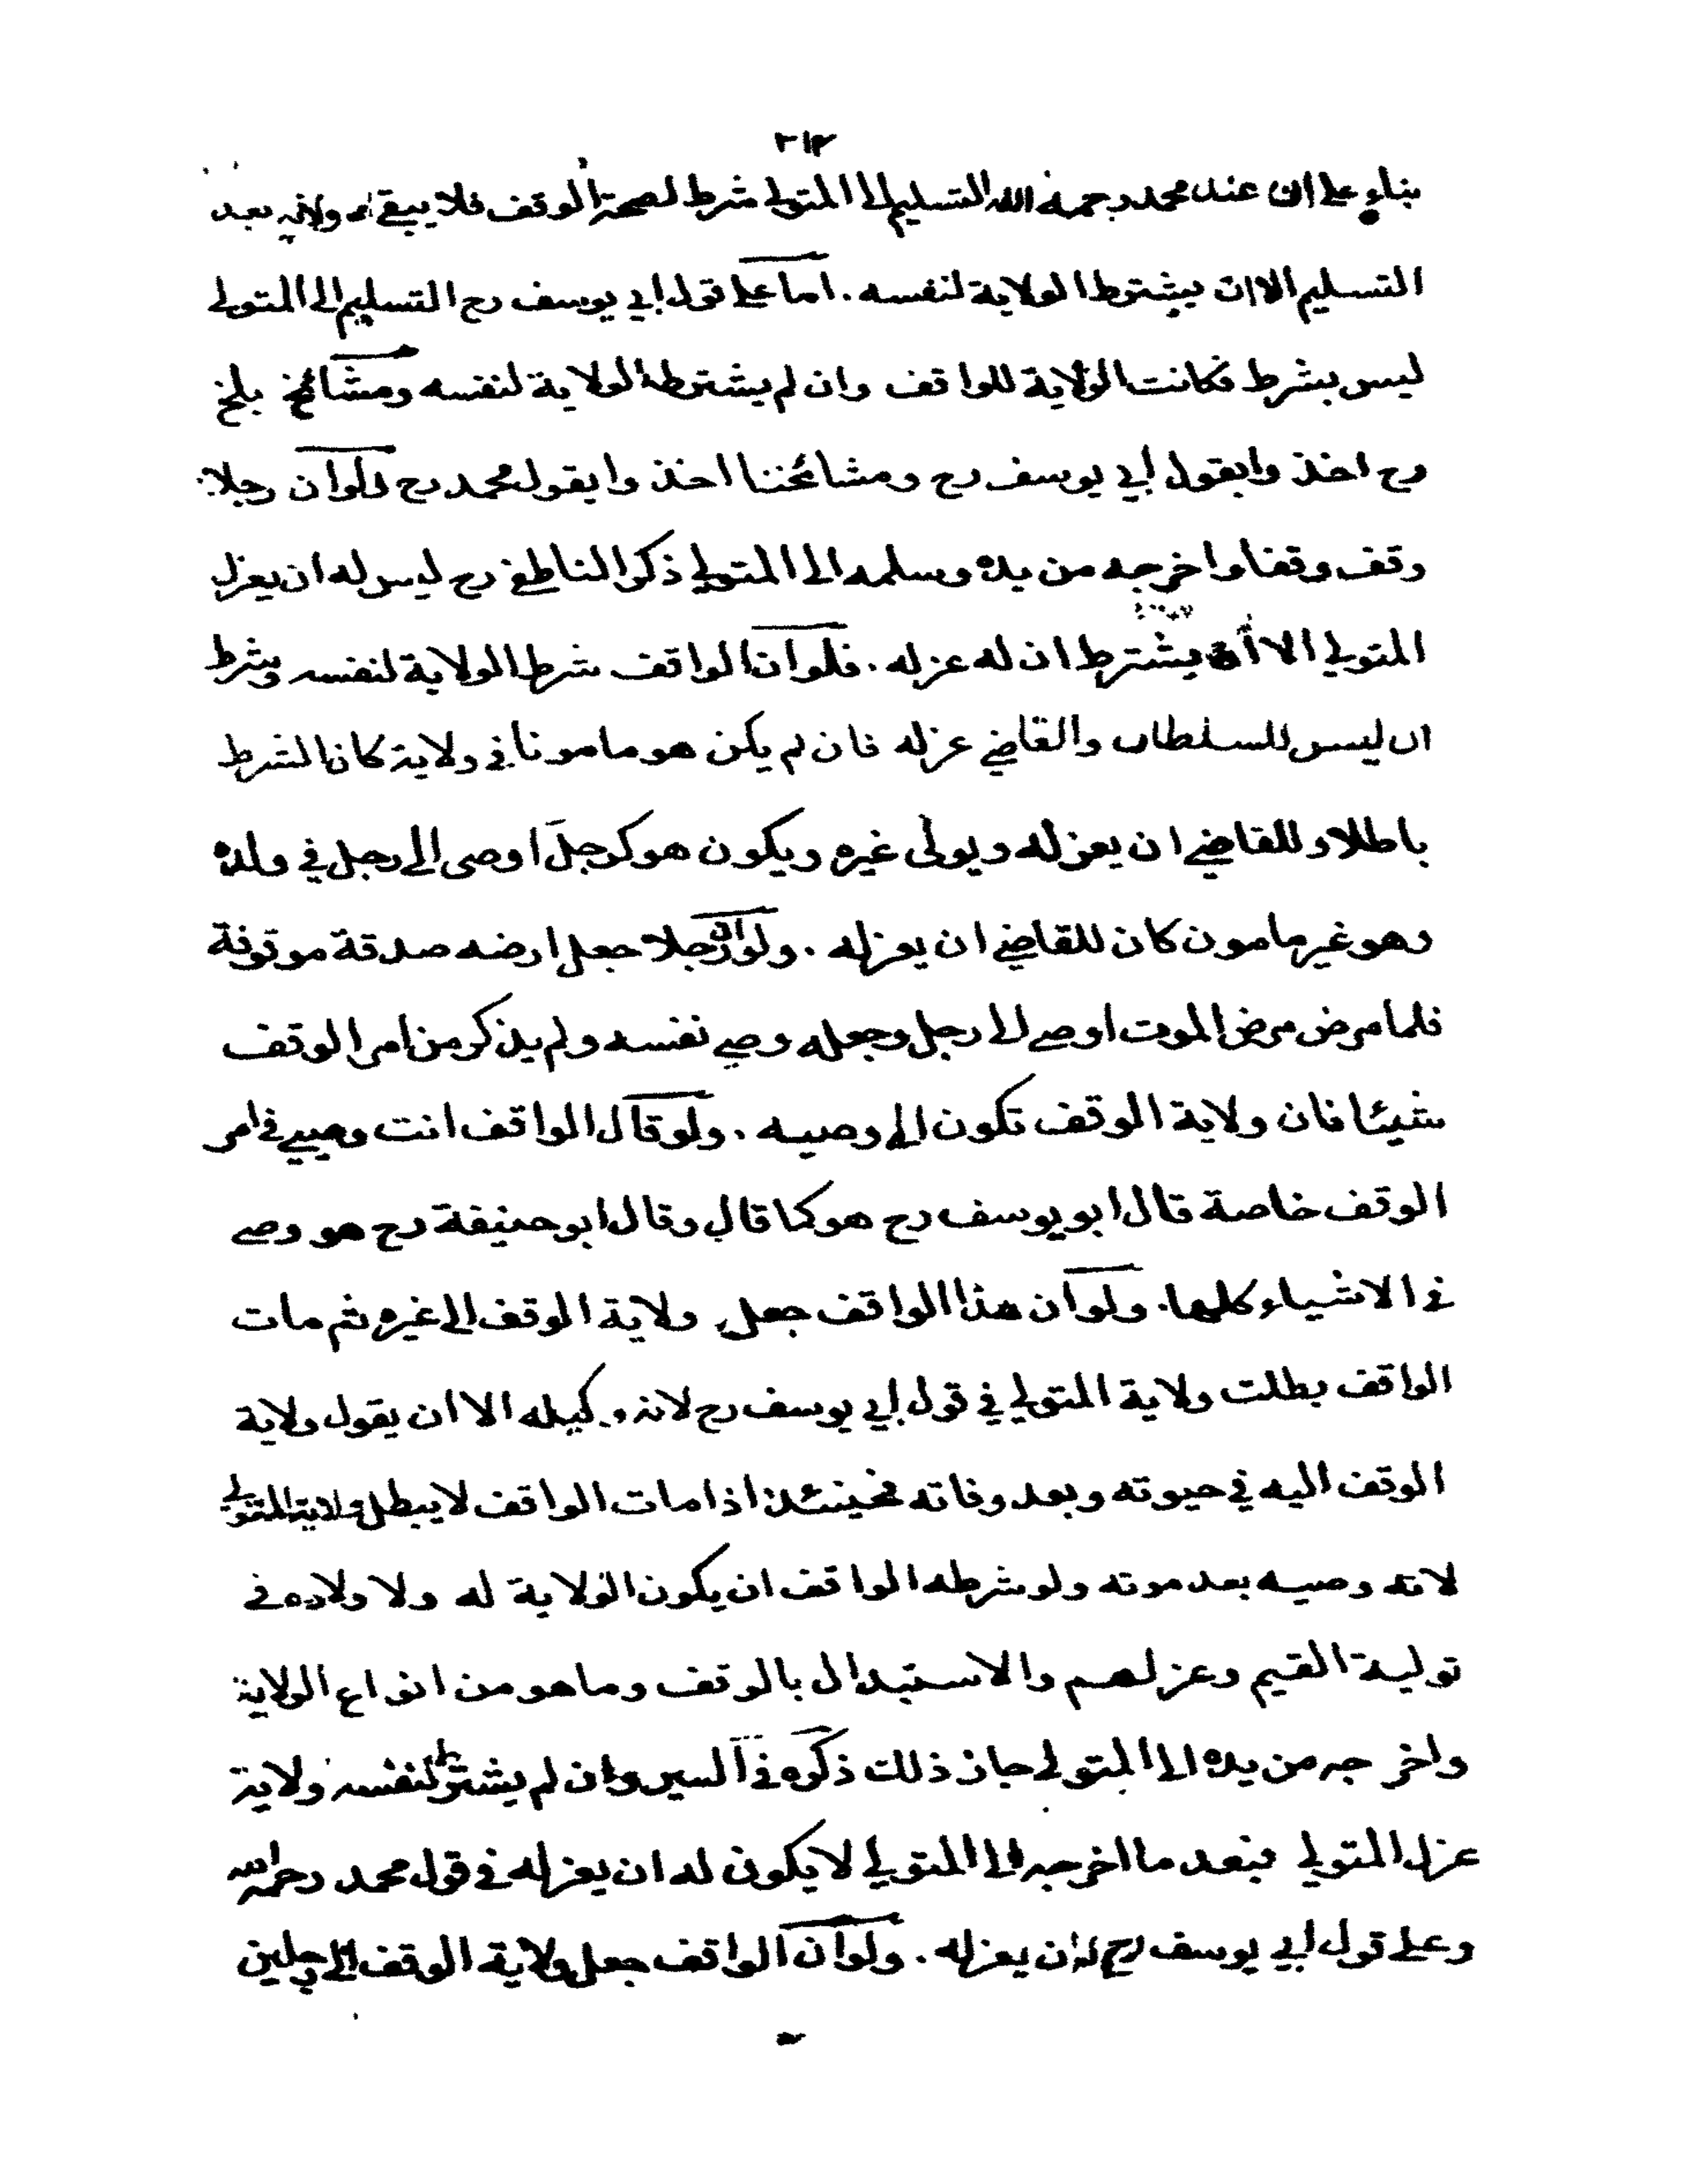 ٣١٢
بناء على ان عند محمد رحمه الله التسليم الى المتولى شرط لصحة الوقف فلا يبقى له ولاية بعد
التسليم الا ان يشترط الولاية لنفسه . اما على قول ابي يوسف رح التسليم الى المتولى
ليس بشرط فكانت الولاية للواقف وان لم يشترط الولاية لنفسه ومشائخ بلخ
رح اخذ وا بقول ابي يوسف رح ومشائخنا اخذ وا بقول محمد رح ولوان رجلا
وقف وقفا واخرجه من يده وسلمه الى المتولي ذكر الناطفي رح ليس له ان يعزل
المتولي الا ان يشترط ان له عزله . فلوان الواقف شرط الولاية لنفسه وشرط
ان ليس للسلطان والقاضي عزله فان لم يكن هو مامونا في ولاية كان الشرط
باطلا وللقاضي ان يعزله ويولى غيره ويكون هو كرجل اوصى الى رجل في ولده
وهو غير مامون كان للقاضي ان يعزله . ولوان رجلا جعل ارضه صدقة موقوفة
فلما مرض مرض الموت اوصى الى رجل وجعله وصي نفسه ولم يذكر من امر الوقف
شيئا فان ولاية الوقف تكون الى وصيه . ولو قال الواقف انت وصيي في امر
الوقف خاصة قال ابو يوسف رح هو كما قال وقال ابو حنيفة رح هو وصي
في الاشياء كلها . ولوان هذا الواقف جعل ولاية الوقف الى غيره ثم مات
الواقف بطلت ولاية المتولي في قول ابي يوسف رح لانه وكيله الا ان يقول ولاية
الوقف اليه في حيوته وبعد وفاته فحينئذ اذا مات الواقف لا يبطل ولاية المتولي
لانه وصيه بعد موته ولو شرطه الواقف ان يكون الولاية له ولا ولاده في
تولية القيم وعزلهم والاستبدال بالوقف وما هو من انواع الولاية
واخر جه من يده الى المتولي جاز ذلك ذكره في السير وان لم يشترط لنفسه ولاية
عزل المتولي فبعد ما اخرجه الى المتولي لا يكون له ان يعزله في قول محمد رحمه الله
وعلى قول ابي يوسف رح له ان يعزله . ولوان الواقف جعل ولاية الوقف الى رجلين